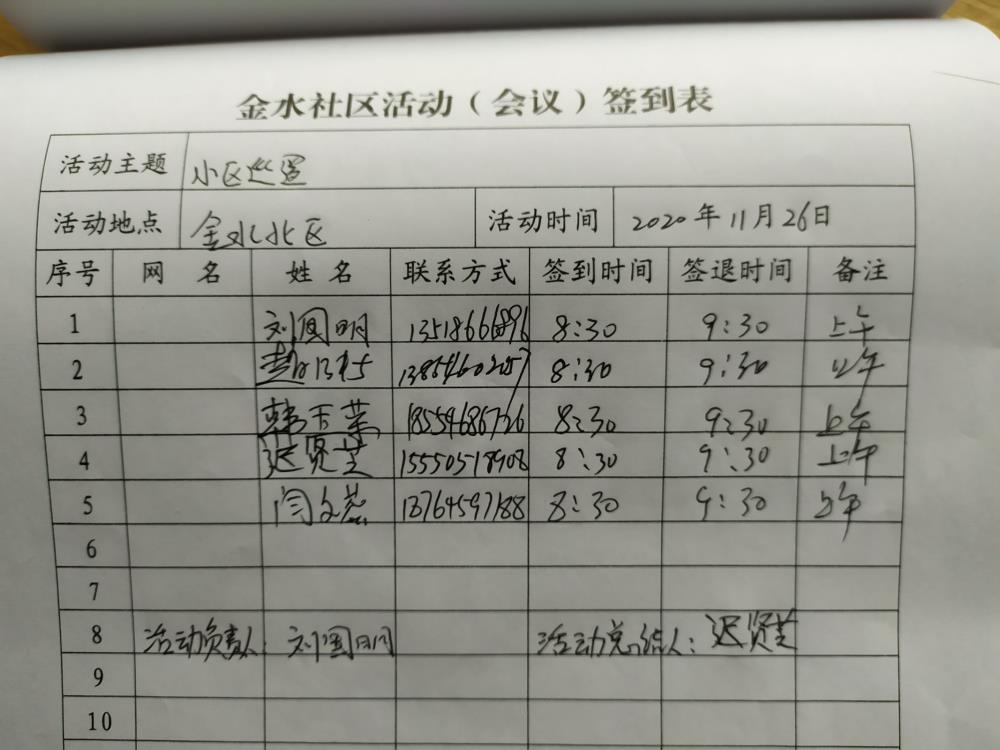 金水社区活动（会议）签到表
活动主题 小区巡逻
活动地点 金水北区 活动时间 2020年11月26日
序号 网 名 姓 名 联系方式 签到时间 签退时间 备注
1 刘国明 13518666896 8:30 9:30 上午
2 赵 13854602057 8:30 9:30 上午
3 韩玉英 18554686726 8:30 9:30 上午
4 迟贤芝 15550518908 8:30 9:30 上午
5 闫文燕 13764597188 8:30 9:30 上午
6
7
8 活动负责人：刘国明 活动总结人：迟贤芝
9
10